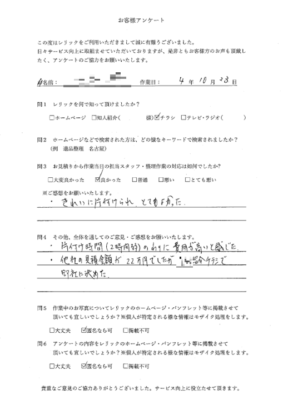 お客様アンケート
この度はレリックをご利用いただきまして誠に有難うございました。
日々サービス向上に勉めさせていただいておりますが、是非ともお客様方のお声を頂戴したく、アンケートのご協力をお願いいたします。
名前： 作業日： 4年10月23日
問1 レリックを何で知って頂けましたか？
□ホームページ □知人紹介( 様) ☑チラシ □テレビ・ラジオ( )
問2 ホームページなどで検索された方は、どの様なキーワードで検索されましたか？
(例 遺品整理 名古屋)
問3 お見積りから作業当日の担当スタッフ・整理作業の対応は如何でしたか？
□大変良かった ☑良かった □普通 □悪い □とても悪い
※ご感想をお願いいたします。
・きれいに片付けられ、とても良かった。
問4 その他、全体を通してのご意見・ご感想をお願いいたします。
・片付け時間(2時間弱)のわりに費用が高いと感じた。
・他社の見積金額が22万円でしたが
問5 作業中のお写真についてレリックのホームページ・パンフレット等に掲載させて
頂いても宜しいでしょうか？※個人が特定される様な情報はモザイク処理をします。
□大丈夫 ☑匿名なら可 □掲載不可
問6 アンケートの内容をレリックのホームページ・パンフレット等に掲載させて
頂いても宜しいでしょうか？※個人が特定される様な情報はモザイク処理をします。
□大丈夫 ☑匿名なら可 □掲載不可
貴重なご意見のご協力ありがとうございました。サービス向上に役立たせて頂きます。